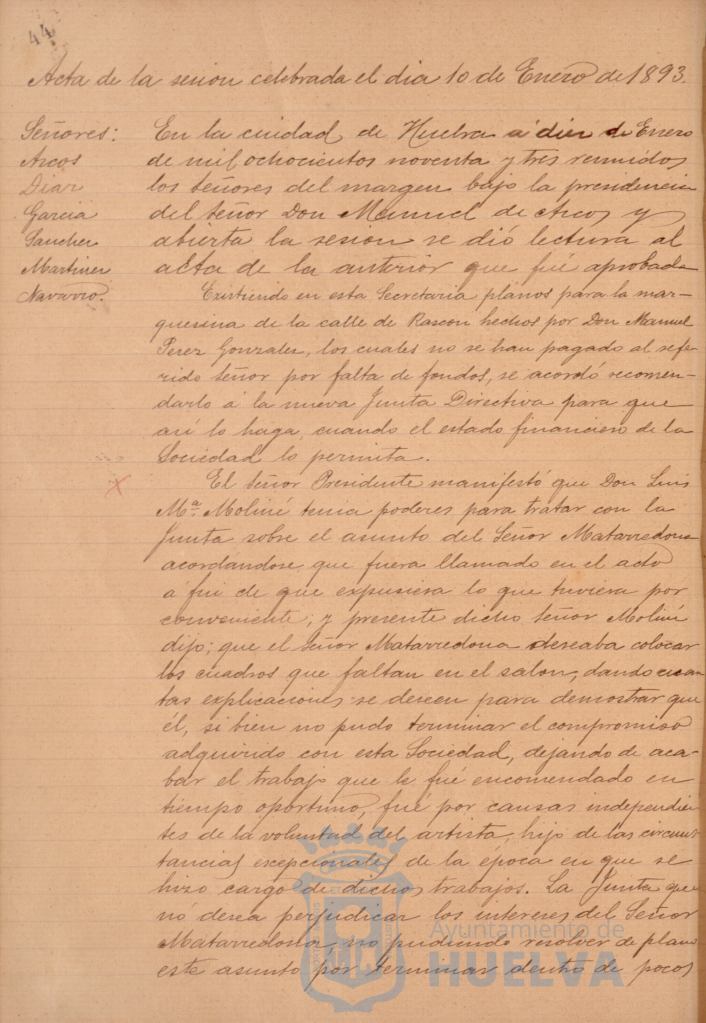 44
Acta de la sesion celebrada el dia 10 de Enero de 1893.
Señores:
Arcos
Diaz
Garcia
Sanchez
Martinez
Navarro.
En la ciudad de Huelva a diez de Enero
de mil ochocientos noventa y tres reunidos
los señores del margen bajo la presidencia
del señor Don Manuel de Arcos y
abierta la sesion se dió lectura al
acta de la anterior que fué aprobada
Existiendo en esta Secretaria planos para la mar-
quesina de la calle de Rascon hechos por Don Manuel
Perez Gonzalez, los cuales no se han pagado al refe-
rido señor por falta de fondos, se acordó recomen-
darlo á la nueva Junta Directiva para que
asi lo haga, cuando el estado financiero de la
Sociedad lo permita.
El señor Presidente manifestó que Don Luis
Mª Moliní tenia poderes para tratar con la
Junta sobre el asunto del Señor Matarredona
acordandose, que fuera llamado en el acto
á fin de que expusiera lo que tuviera por
conveniente; y presente dicho señor Moliní
dijo; que el señor Matarredona deseaba colocar
los cuadros que faltan en el salon, dando cuan
tas explicaciones se deseen para demostrar que
él, si bien no pudo terminar el compromiso
adquirido con esta Sociedad, dejando de aca-
bar el trabajo que le fué encomendado en
tiempo oportuno, fué por causas independien
tes de la voluntad del artista, hijo de las circuns
tancias escepcionales de la época en que se
hizo cargo de dichos trabajos. La Junta que
nó desea perjudicar los intereses del Señor
Matarredona, no pudiendo resolver de plano
este asunto por terminar dentro de pocos
Ayuntamiento de
HUELVA